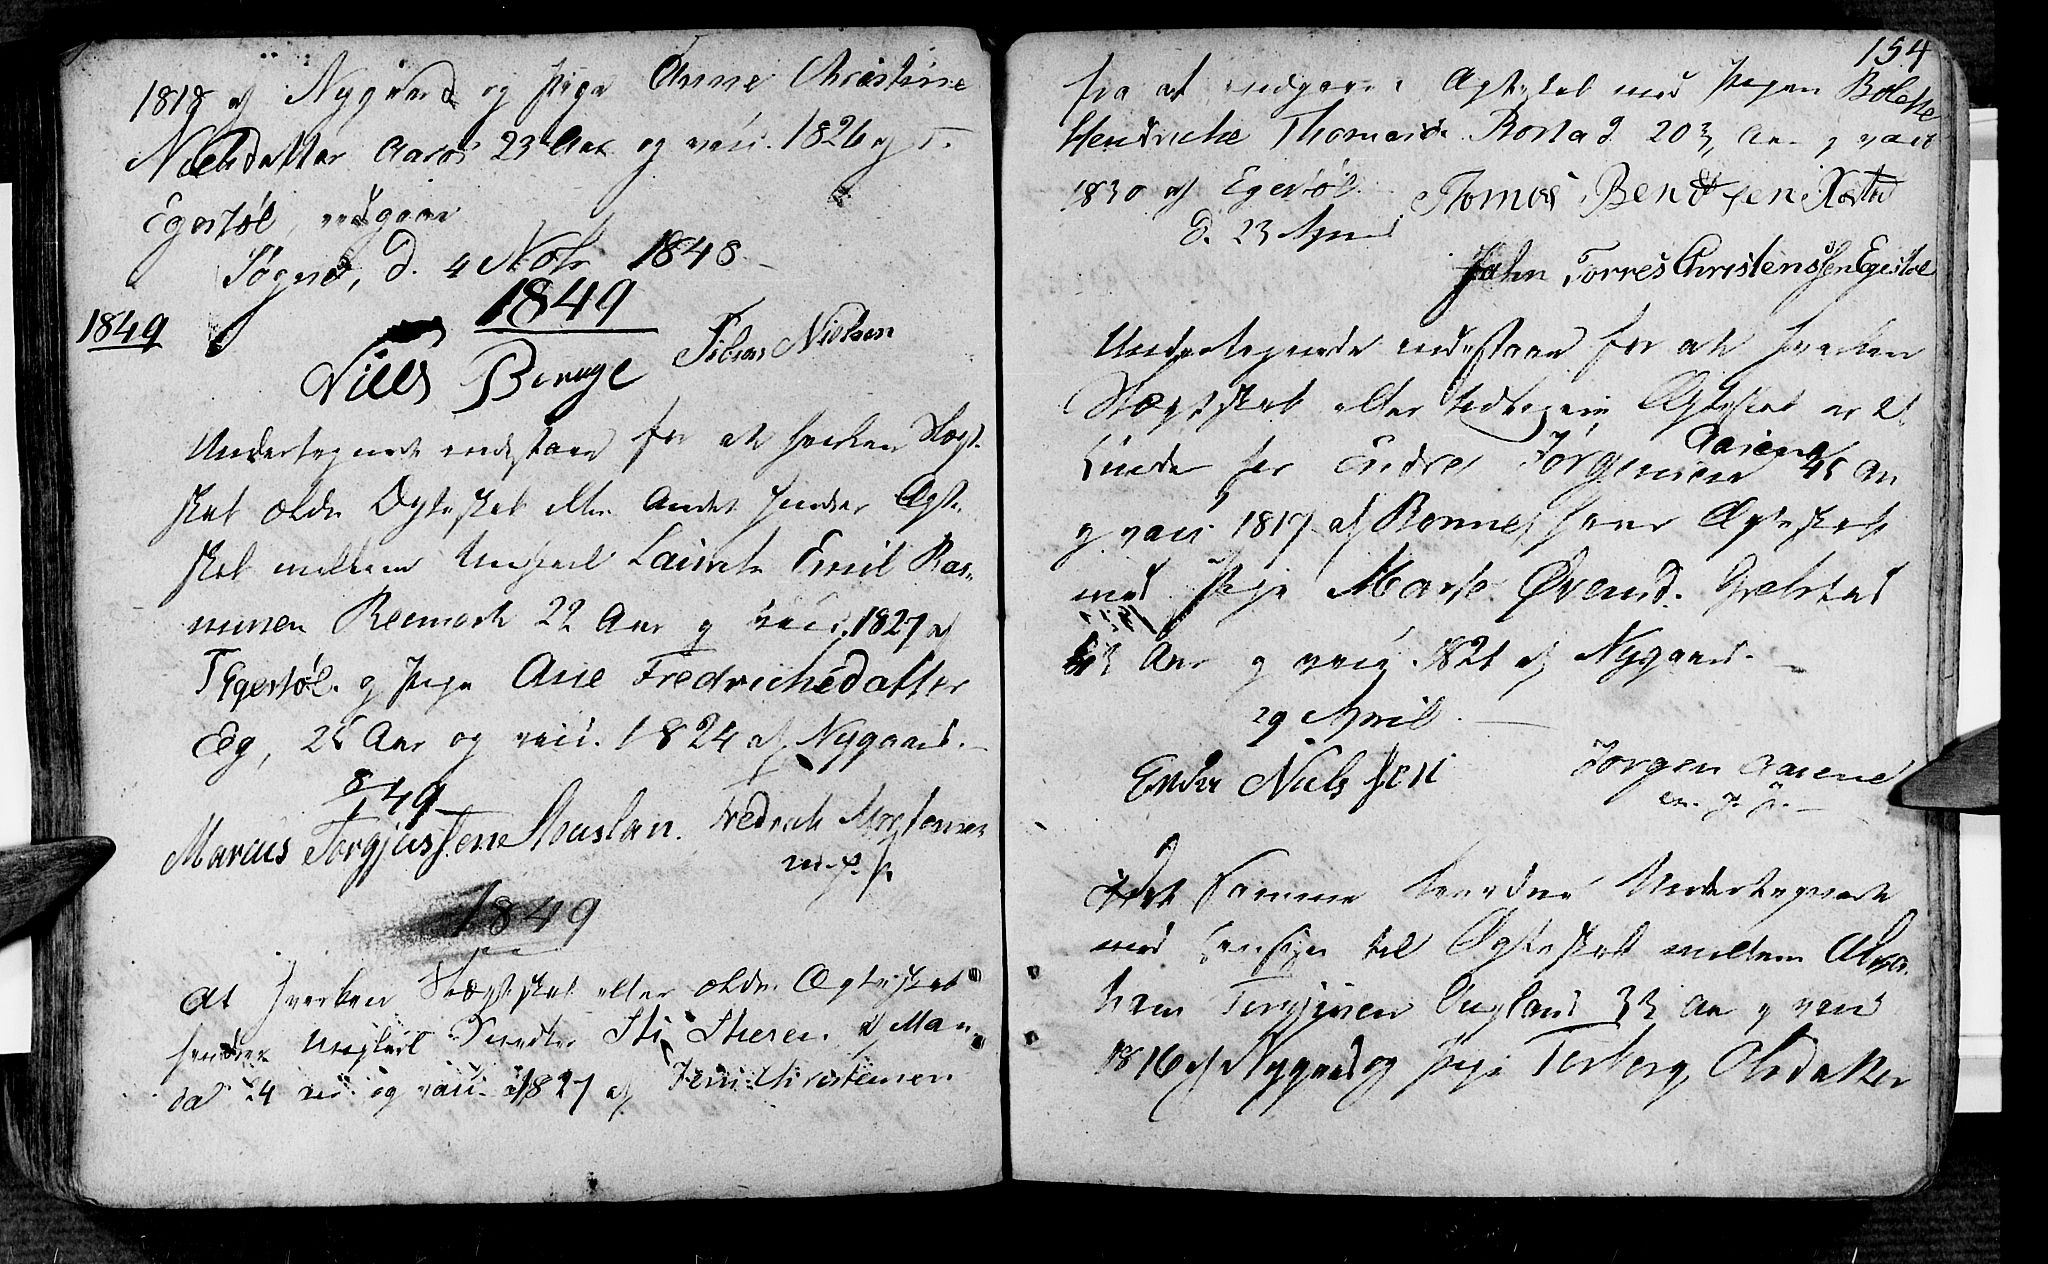 1818 af Nygaard og Pige Anne Christine
Nielsdatter Aaros 23 Aar og vacc. 1826 af
Egestøl, indgaae
Søgne, d. 4 Nobr 1848.
1849
1849
Niels Berge Tobias Nielsen
Undertegnede indestaae for at hverken Slægt-
skab ældre Ægteskab eller Andet hindrer Ægte-
skab mellem Ungkarl Laurits Emil Ras-
mussen 22 Aar og vacc. 1827 af
Egestøl og Pige Ane Fredrichsdatter
Eeg, 25 Aar og vacc. 1824 af Nygaard.
849
Marcus Torgjussen Fredrich Mortensen
m. p. P.
1849
At hverken Slægtskab eller ældre Ægteskab
hindrer Ungkarl af Man-
dal 24 Aar og vacc. 1827 af Jens Christensen
154
fra at indgaae Ægteskab med Pigen Bolette
Hendricke Thomasd. Rosta d. 20 3/4 Aar og vacc
1830 af Egestøl
d. 23 April
Tomas Bendtsen Rosta
John Torres Christenssen Egestøl
Undertegnede indestaae for at hverken
Slægtskab eller tidligere Ægteskab er til
Hinder for Endre Jørgensen Aasene 45 Aar
og vacc 1817 af Bonnes hans Ægteskab
med Pige Marthe Øvensd.
Aar og vacc. 1821 af Nygaard.
29 April.
Endre Nielssen Jørgen Aasene
m. p. P.
Det Samme Undertegnede
med Hensyn til Ægteskab mellem Abra-
ham Tergjesen Augland 33 Aar og vacc
1816 af Nygaard og Pige Terberg Olsdatter